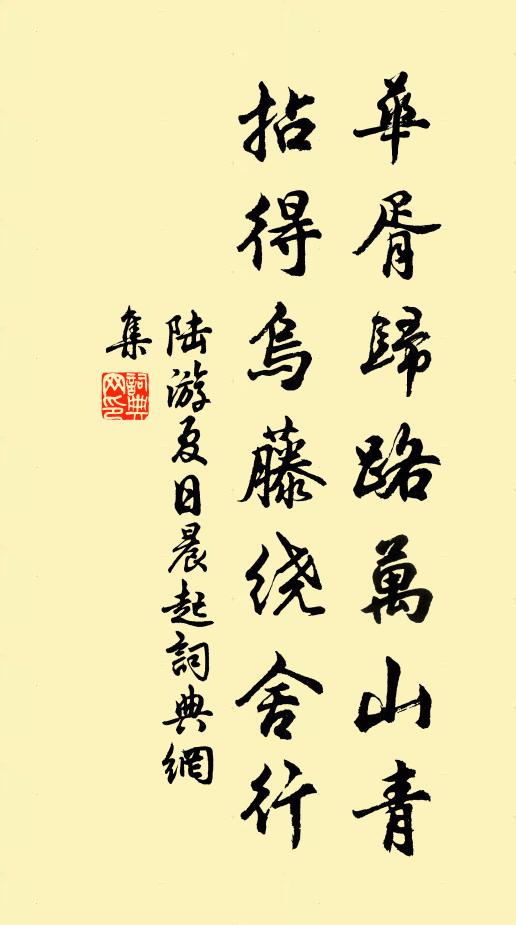 華胥歸路萬山青
拈得烏藤绕舍行
陆游夏日晨起詞典網
集
詞典
网印